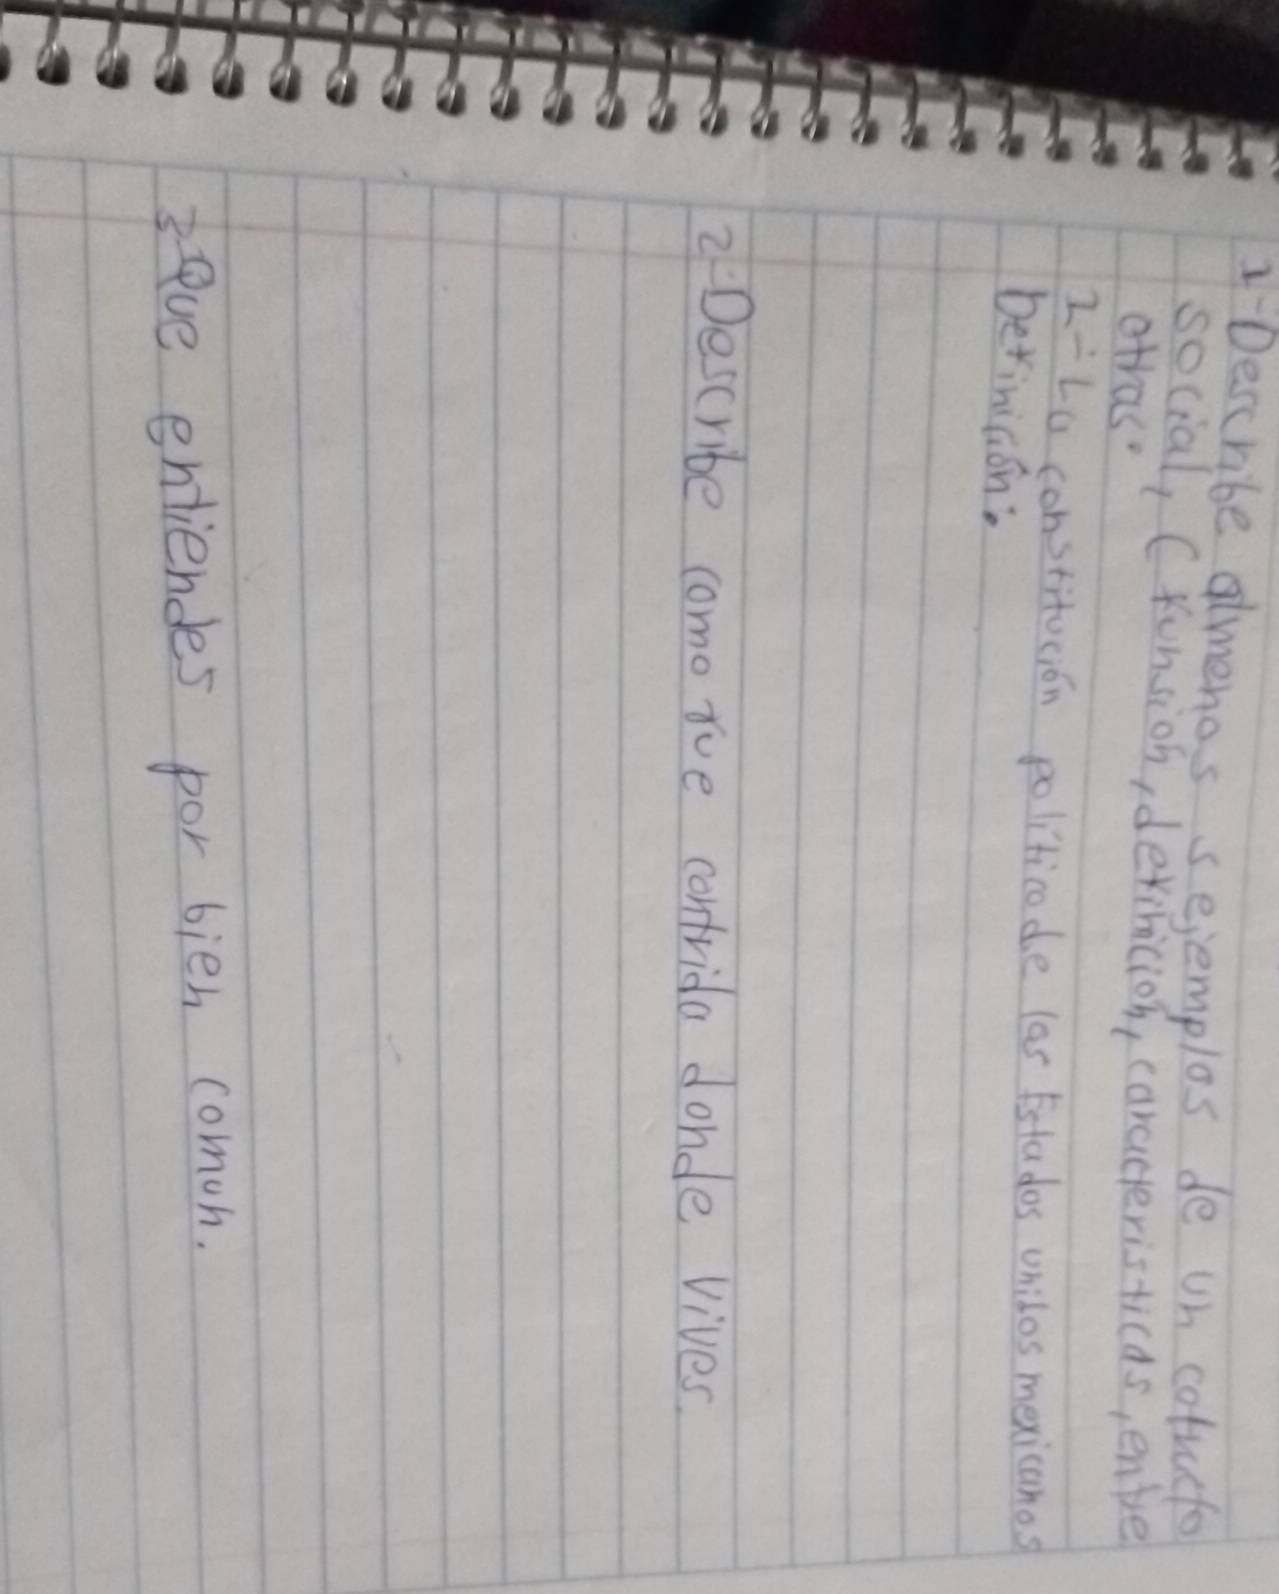 1-Describe almenos 5 ejemplos de un cotructo
social, (funsión, definición, caracteristicas, entre
otras.
1-La constitución politica de los Estados unidos mexicanos
Definición:
2-Describe como fue contrida donde vives.
3-Que entiendes por bien comun.